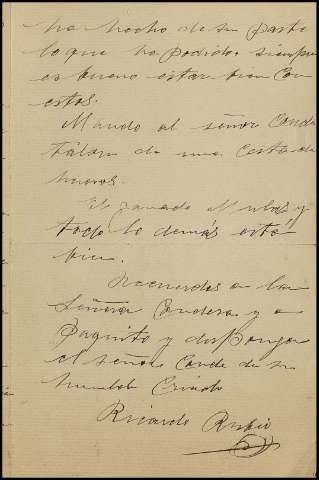 ha hecho de su parte
lo que ha podido. siempre
es bueno estar bien con
estos.
Mando al señor Conde
talon de una cesta de
huevos.
El ganado Mulas y
todo lo demás está
bien.
Recuerdos a la
Señora Condesa y a
Paquito y disponga
el señor Conde de su
humilde Criado
Ricardo Rubio